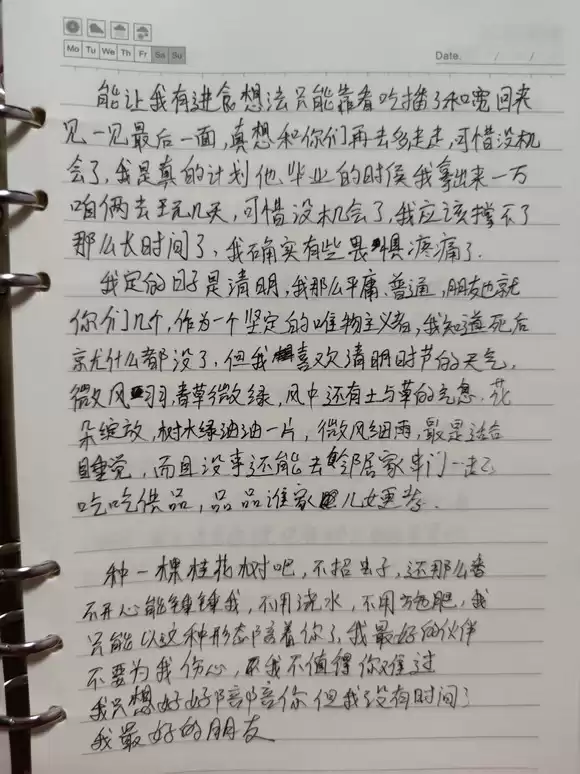 Mo Tu We Th Fr Sa Su
Date. / /
能让我有进食想法只能靠看吃播了和宽回来
见一见最后一面,真想和你们再去多走走,可惜没机
会了,我是真的计划他毕业的时候我拿出来一万
咱俩去玩几天,可惜没机会了,我应该撑不了
那么长时间了,我确实有些畏惧疼痛了.
我定的日子是清明,我那么平庸、普通,朋友也就
你们几个,作为一个坚定的唯物主义者,我知道死后
就什么都没了,但我喜欢清明时节的天气,
微风羽,青草微绿,风中还有土与草的气息.花
朵绽放,树木绿油油一片,微风细雨,最是适合
睡觉,而且没事还能去邻居家串门一起
吃吃供品,品品谁家儿女更孝.
种一棵桂花树吧,不招虫子,还那么香
不开心能锤锤我,不用浇水,不用施肥,我
只能以这种形态陪着你了,我最好的伙伴
不要为我伤心,我不值得你难过
我只想好好陪陪你但我没有时间了
我最好的朋友